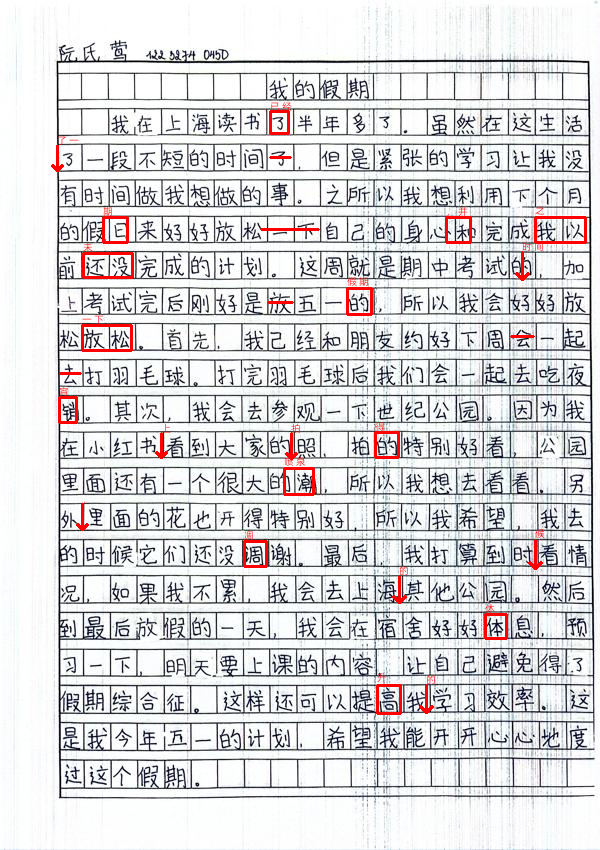 阮氏莺 122 3274 045D
我的假期
已经
我在上海读书了半年多了。虽然在这生活
了一
了一段不短的时间了，但是紧张的学习让我没
有时间做我想做的事。之所以我想利用下个月
期 并 之
的假日来好好放松一下自己的身心和完成我以
未 时间
前还没完成的计划。这周就是期中考试的，加
假期
上考试完后刚好是放五一的，所以我会好好放
一下
松放松。首先，我己经和朋友约好下周会一起
去打羽毛球。打完羽毛球后我们会一起去吃夜
宵
销。其次，我会去参观一下世纪公园。因为我
上 拍 得
在小红书看到大家的照，拍的特别好看，公园
喷泉
里面还有一个很大的潮，所以我想去看看。另
外里面的花也开得特别好，所以我希望，我去
凋
的时候它们还没调谢。最后，我打算到时看情
候
的
况，如果我不累，我会去上海其他公园。然后
休
到最后放假的一天，我会在宿舍好好体息，预
习一下，明天要上课的内容，让自己避免得了
升 的
假期综合征。这样还可以提高我学习效率。这
是我今年五一的计划，希望我能开开心心地度
过这个假期。